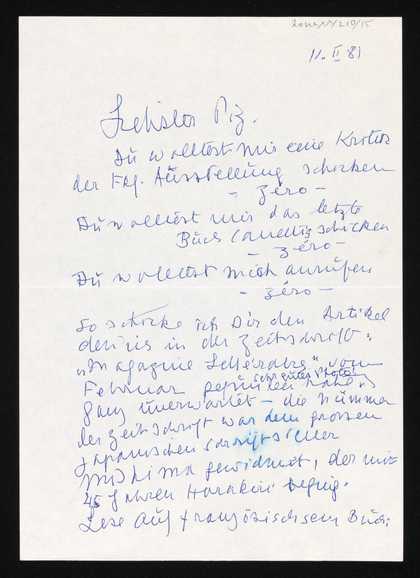 11. II 81
Du wolltest mir eine Kritik
der Frf. Ausstellung schicken
– zéro –
Du wolltest mir das letzte
Buch Canettis schicken
– zéro –
Du wolltest mich anrufen
– zéro –
So schicke ich Dir den Artikel
den ich in der Zeitschrift
"Magazine Littéraire" vom
sehr guter Photo
Februar gefunden habe
ganz unerwartet – die Nummer
der Zeitschrift war dem grossen
Japanischen Schriftsteller
Mishima gewidmet, der mit
45 Jahren Harakiri beging.
Lese auf französisch sein Buch: